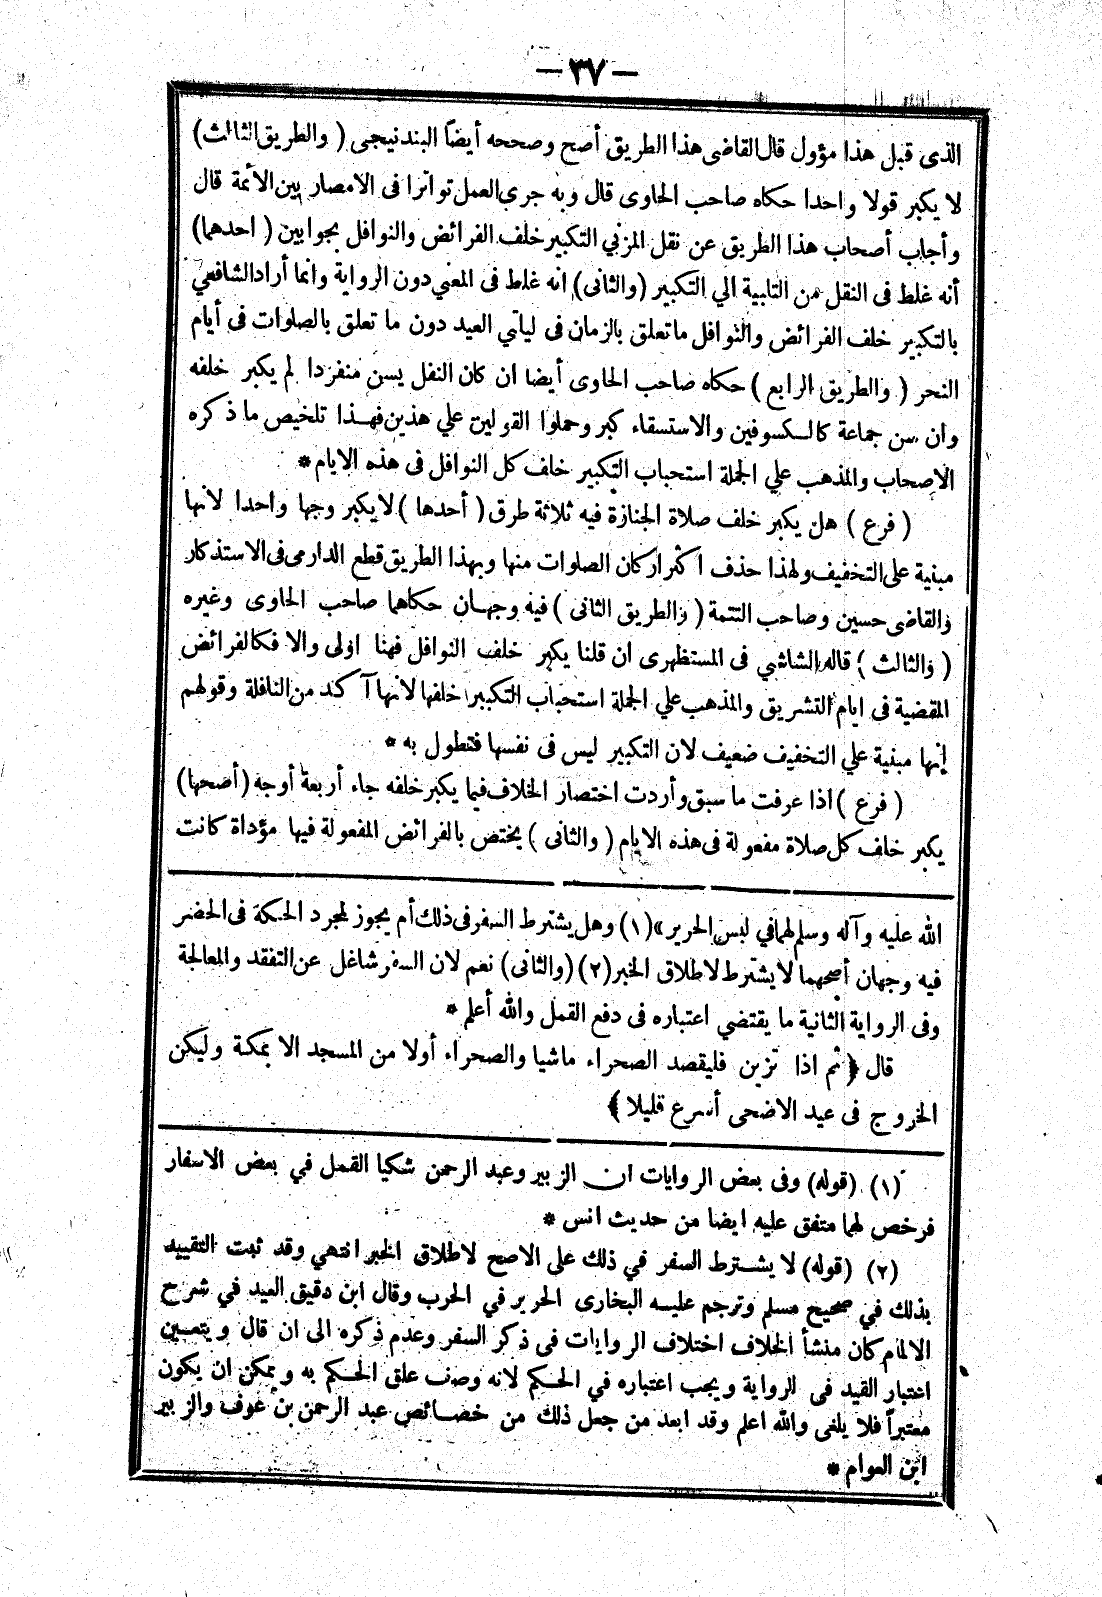 — ٣٧ —
الذى قبل هذا مؤول قال القاضى هذا الطريق أصح وصححه أيضا البندنيجى ( والطريق الثالث)
لا يكبر قولا واحدا حكاه صاحب الحاوى قال وبه جرى العمل تواترا فى الامصار بين الأئمة قال
وأجاب أصحاب هذا الطريق عن نقل المزني التكبير خلف الفرائض والنوافل بجوابين ( احدهما)
أنه غلط فى النقل من التلبية الي التكبير (والثانى) انه غلط فى المعني دون الرواية وانما أراد الشافعي
بالتكبير خلف الفرائض والنوافل ما تعلق بالزمان فى ليلتي العيد دون ما تعلق بالصلوات فى أيام
النحر ( والطريق الرابع ) حكاه صاحب الحاوى أيضا ان كان النفل يسن منفردا لم يكبر خلفه
وان سن جماعة كالكسوفين والاستسقاء كبر وحملوا القولين علي هذين فهذا تلخيص ما ذكره
الاصحاب والمذهب علي الجملة استحباب التكبير خلف كل النوافل فى هذه الايام *
( فرع ) هل يكبر خلف صلاة الجنازة فيه ثلاثة طرق ( أحدها ) لايكبر وجها واحدا لانها
مبنية على التخفيف ولهذا حذف اكثر اركان الصلوات منها وبهذا الطريق قطع الدارمى فى الاستذكار
والقاضى حسين وصاحب التتمة ( والطريق الثانى ) فيه وجهان حكاهما صاحب الحاوى وغيره
( والثالث ) قاله الشاشي فى المستظهرى ان قلنا يكبر خلف النوافل فهنا اولى والا فكالفرائض
المقضية فى ايام التشريق والمذهب علي الجملة استحباب التكبير خلفها لانها آكد من النافلة وقولهم
إنها مبنية علي التخفيف ضعيف لان التكبير ليس فى نفسها فتطول به *
( فرع ) اذا عرفت ما سبق وأردت اختصار الخلاف فيما يكبر خلفه جاء أربعة أوجه (أصحها)
يكبر خلف كل صلاة مفعولة فى هذه الايام ( والثانى ) يختص بالفرائض المفعولة فيها مؤداة كانت
الله عليه وآله وسلم لهما في لبس الحرير» (١) وهل يشترط السفر فى ذلك أم يجوز لمجرد الحكة فى الحضر
فيه وجهان أصحهما لا يشترط لاطلاق الخبر (٢) (والثانى) نعم لان السفر شاغل عن التفقد والمعالجة
وفى الرواية الثانية ما يقتضي اعتباره فى دفع القمل والله أعلم *
قال ﴿ ثم اذا تزين فليقصد الصحراء ماشيا والصحراء أولا من المسجد الا بمكة وليكن
الخروج فى عيد الاضحى أسرع قليلا ﴾
(١) (قوله) وفى بعض الروايات ان الزبير وعبد الرحمن شكيا القمل في بعض الاسفار
فرخص لهما متفق عليه ايضا من حديث انس *
(٢) (قوله) لا يشترط السفر في ذلك على الاصح لاطلاق الخبر انتهي وقد ثبت التقييد
بذلك في صحيح مسلم وترجم عليه البخارى الحرير في الحرب وقال ابن دقيق العيد في شرح
الالمام كان منشأ الخلاف اختلاف الروايات فى ذكر السفر وعدم ذكره الى ان قال ويتعين
اعتبار القيد فى الرواية ويجب اعتباره في الحكم لانه وصف علق الحكم به ويمكن ان يكون
معتبراً فلا يلغى والله اعلم وقد ابعد من جعل ذلك من خصائص عبد الرحمن بن عوف والزبير
ابن العوام *